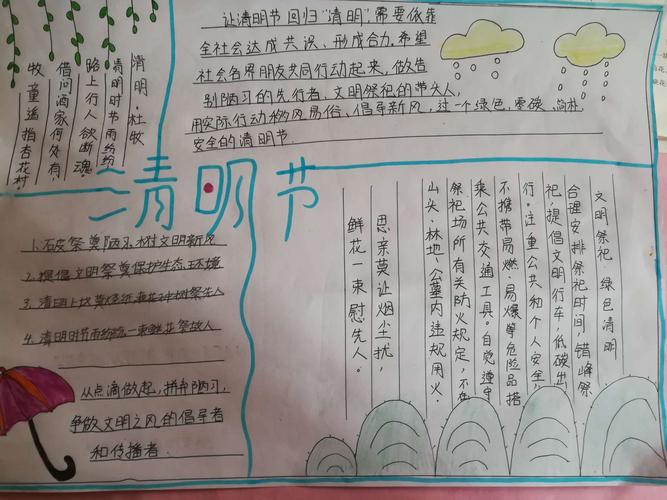 清明·杜牧
清明时节雨纷纷
路上行人欲断魂。
借问酒家何处有,
牧童遥指杏花村
让清明节回归“清明”需要依靠
全社会达成共识、形成合力,希望
社会各界朋友共同行动起来,做告
别陋习的先行者、文明祭祀的带头人,
用实际行动移风易俗、倡导新风,过一个绿色、零碳、简朴、
安全的清明节.
清明节
1.石皮祭奠陋习,树文明新风
2.提倡文明祭奠保护生态环境
3.清明上坟莫烧纸,栽花种树祭先人
4.清明时节雨纷纷一束鲜花祭故人
从点滴做起,拼弃陋习,
争做文明之风的倡导者
和传播者.
文明祭祀 绿色清明
合理安排祭祀时间,错峰祭
祀,提倡文明行车,低碳出
行。注重公共和个人安全,
不携带易燃、易爆等危险品搭
乘公共交通工具。自觉遵守
祭祀场所有关防火规定,不在
山头、林地、公墓内违规用火。
思亲莫让烟尘扰,
鲜花一束慰先人。